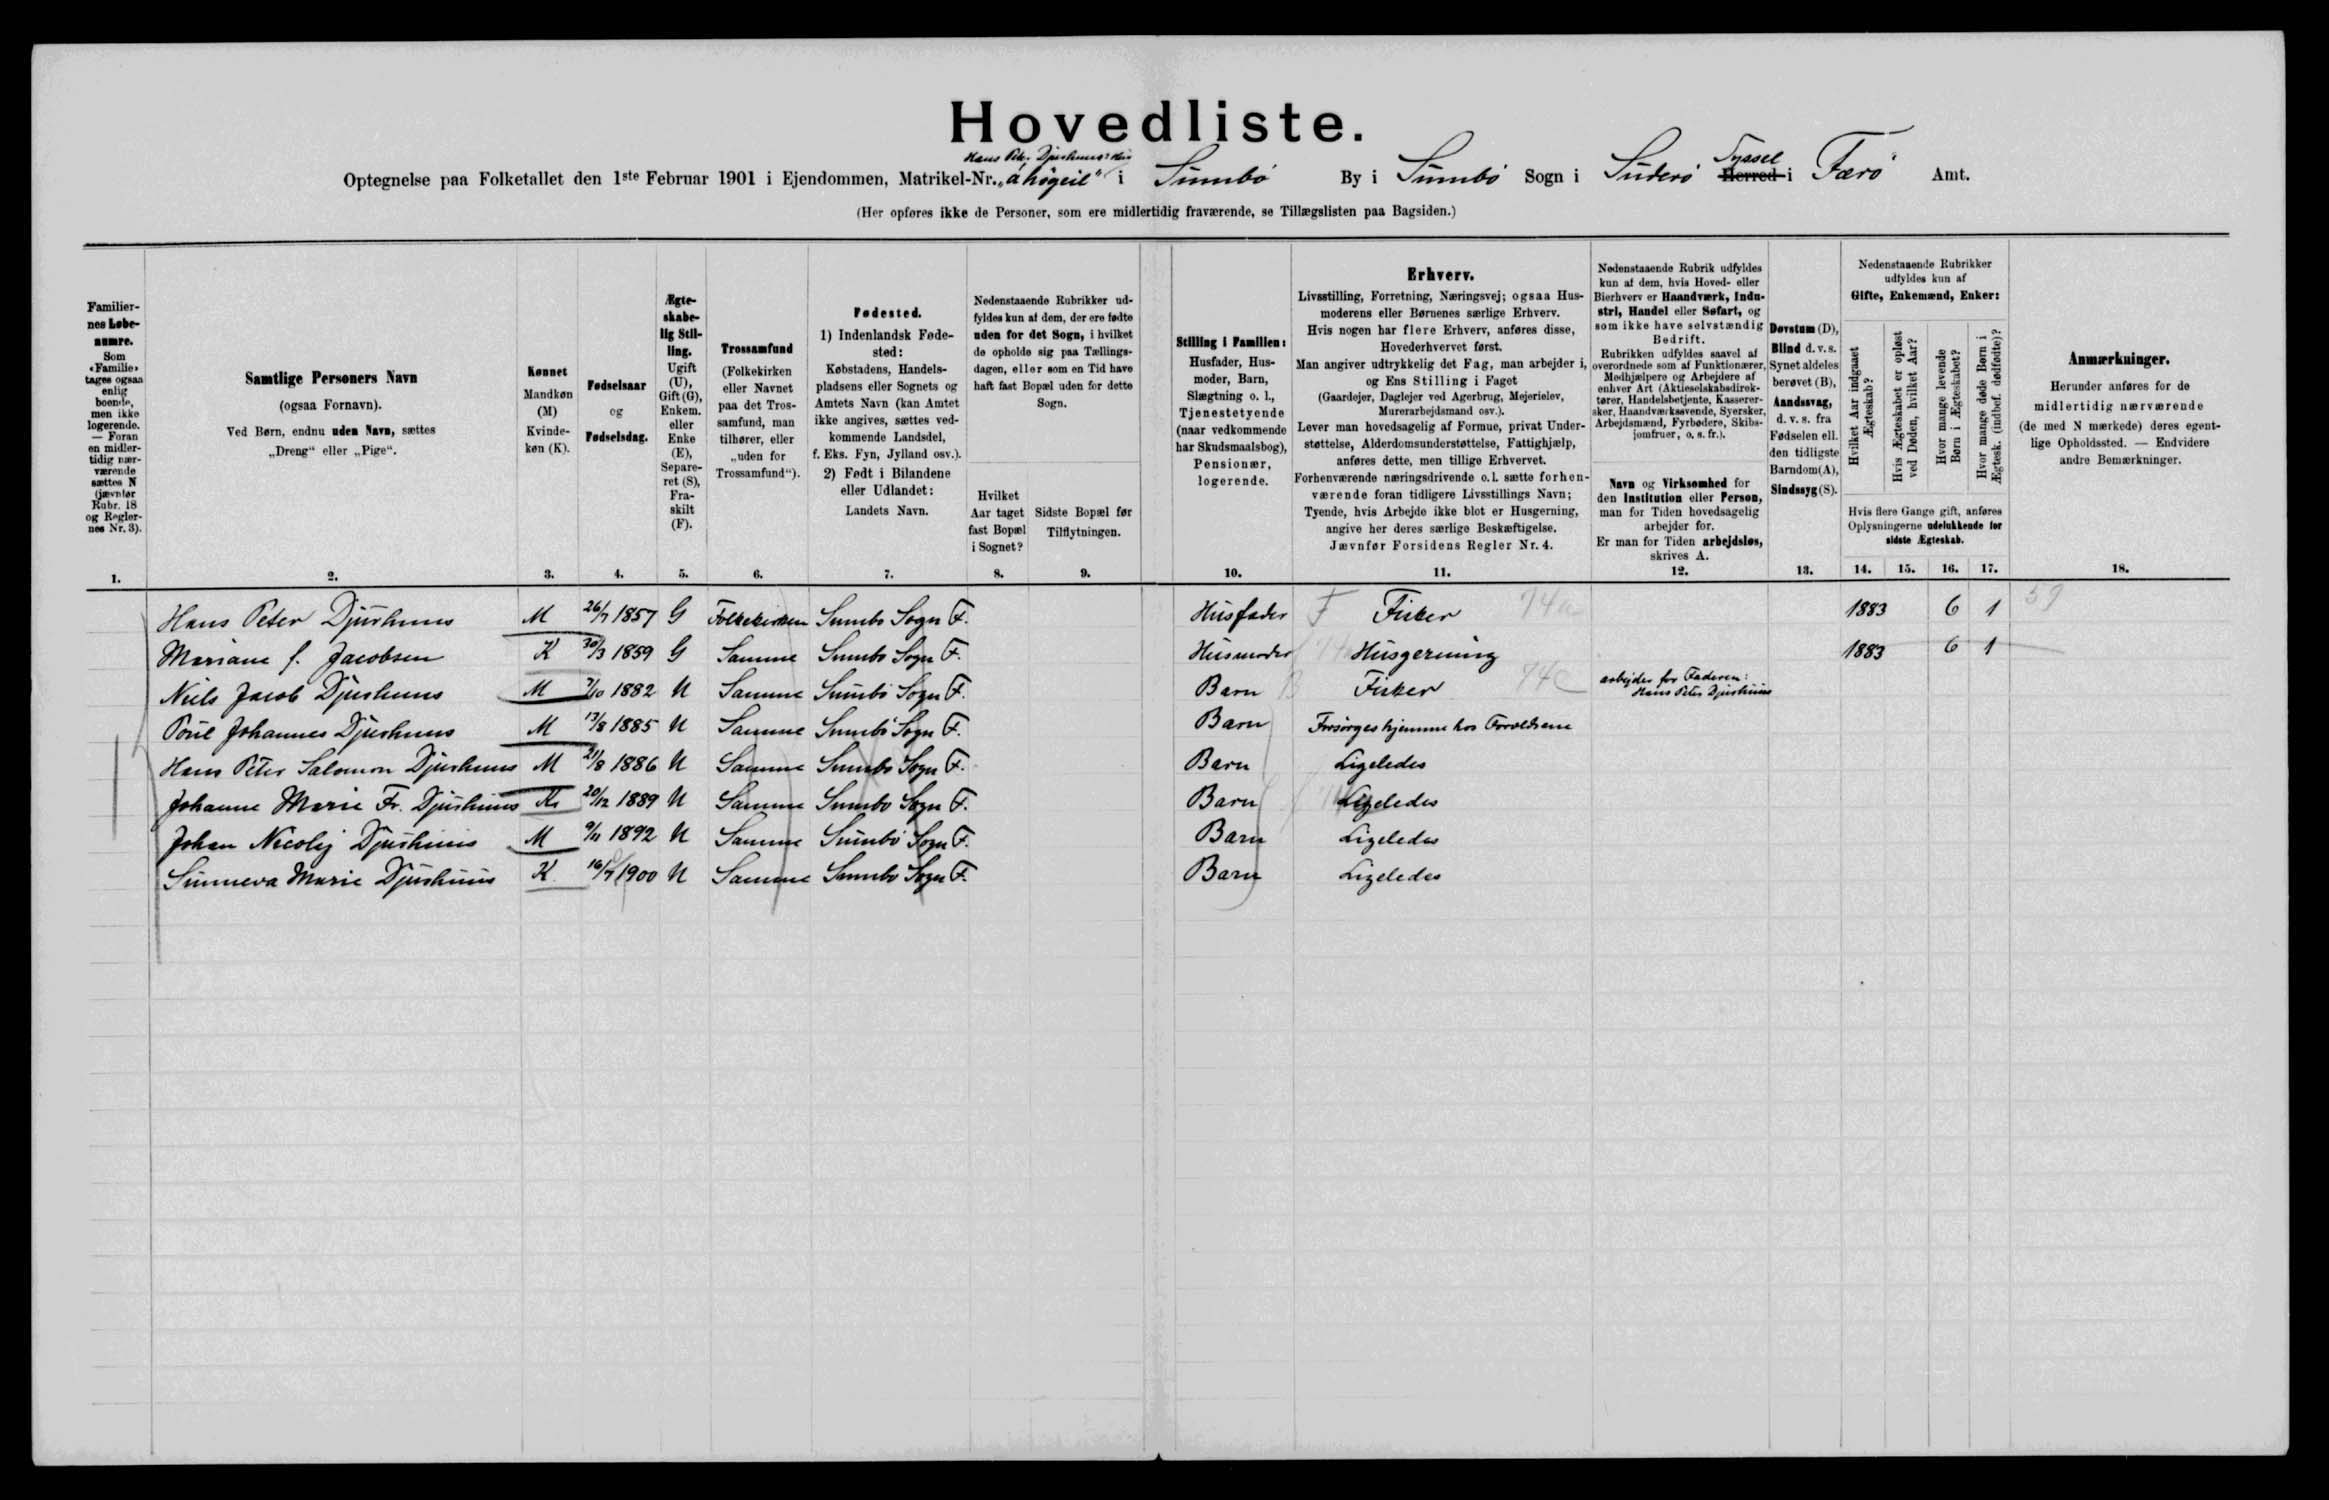 Hovedliste.
Hans Peter Djurhuus' Hus
Optegnelse paa Folketallet den 1ste Februar 1901 i Ejendommen, Matrikel-Nr. „á høgeil“ i Sumbö By i Sumbö Sogn i Suderö Herred Syssel i Færö Amt.
(Her opføres ikke de Personer, som ere midlertidig fraværende, se Tillægslisten paa Bagsiden.)
Familier-
nes Løbe-
numre.
Som
«Familie»
tages ogsaa
enlig
boende,
men ikke
logerende.
— Foran
en midler-
tidig nær-
værende
sættes N
(jævnfør
Rubr. 18
og Regler-
nes Nr. 3).
1.
Samtlige Personers Navn
(ogsaa Fornavn).
Ved Børn, endnu uden Navn, sættes
„Dreng“ eller „Pige“.
2.
Kønnet
Mandkøn
(M)
Kvinde-
køn (K).
3.
Fødselsaar
og
Fødselsdag.
4.
Ægte-
skabe-
lig Stil-
ling.
Ugift
(U),
Gift (G),
Enkem.
eller
Enke
(E),
Separe-
ret (S),
Fra-
skilt
(F).
5.
Trossamfund
(Folkekirken
eller Navnet
paa det Tros-
samfund, man
tilhører, eller
„uden for
Trossamfund“).
6.
Fødested.
1) Indenlandsk Føde-
sted:
Købstadens, Handels-
pladsens eller Sognets og
Amtets Navn (kan Amtet
ikke angives, sættes ved-
kommende Landsdel,
f. Eks. Fyn, Jylland osv.).
2) Født i Bilandene
eller Udlandet:
Landets Navn.
7.
Nedenstaaende Rubrikker ud-
fyldes kun af dem, der ere fødte
uden for det Sogn, i hvilket
de opholde sig paa Tællings-
dagen, eller som en Tid have
haft fast Bopæl uden for dette
Sogn.
Hvilket
Aar taget
fast Bopæl
i Sognet?
8.
Sidste Bopæl før
Tilflytningen.
9.
Stilling i Familien:
Husfader, Hus-
moder, Barn,
Slægtning o. l.,
Tjenestetyende
(naar vedkommende
har Skudsmaalsbog),
Pensionær,
logerende.
10.
Erhverv.
Livsstilling, Forretning, Næringsvej; ogsaa Hus-
moderens eller Børnenes særlige Erhverv.
Hvis nogen har flere Erhverv, anføres disse,
Hovederhvervet først.
Man angiver udtrykkelig det Fag, man arbejder i,
og Ens Stilling i Faget
(Gaardejer, Daglejer ved Agerbrug, Mejerielev,
Murerarbejdsmand osv.).
Lever man hovedsagelig af Formue, privat Under-
støttelse, Alderdomsunderstøttelse, Fattighjælp,
anføres dette, men tillige Erhvervet.
Forhenværende næringsdrivende o. l. sætte forhen-
værende foran tidligere Livsstillings Navn;
Tyende, hvis Arbejde ikke blot er Husgerning,
angive her deres særlige Beskæftigelse.
Jævnfør Forsidens Regler Nr. 4.
11.
Nedenstaaende Rubrik udfyldes
kun af dem, hvis Hoved- eller
Bierhverv er Haandværk, Indu-
stri, Handel eller Søfart, og
som ikke have selvstændig
Bedrift.
Rubrikken udfyldes saavel af
overordnede som af Funktionærer,
Medhjælpere og Arbejdere af
enhver Art (Aktieselskabsdirek-
tører, Handelsbetjente, Kasserer-
sker, Haandværkssvende, Syersker,
Arbejdsmænd, Fyrbødere, Skibs-
jomfruer, o. s. fr.).
Navn og Virksomhed for
den Institution eller Person,
man for Tiden hovedsagelig
arbejder for.
Er man for Tiden arbejdsløs,
skrives A.
12.
Døvstum (D),
Blind d. v. s.
Synet aldeles
berøvet (B),
Aandssvag,
d. v. s. fra
Fødselen ell.
den tidligste
Barndom (A),
Sindssyg (S).
13.
Nedenstaaende Rubrikker
udfyldes kun af
Gifte, Enkemænd, Enker:
Hvilket Aar indgaaet
Ægteskab?
Hvis Ægteskabet er opløst
ved Døden, hvilket Aar?
Hvor mange levende
Børn i Ægteskabet?
Hvor mange døde Børn i
Ægtesk. (indbef. dødfødte)?
Hvis flere Gange gift, anføres
Oplysningerne udelukkende for
sidste Ægteskab.
14. 15. 16. 17.
Anmærkninger.
Herunder anføres for de
midlertidig nærværende
(de med N mærkede) deres egent-
lige Opholdssted. — Endvidere
andre Bemærkninger.
18.
Hans Peter Djurhuus M 26/7 1857 G Folkekirken Sumbö Sogn F. Husfader F Fisker 74a 1883 6 1 59
Mariane f. Jacobsen K 30/3 1859 G Samme Sumbö Sogn F. Husmoder Husgerning 1883 6 1
Niels Jacob Djurhuus M 7/10 1882 U Samme Sumbö Sogn F. Barn B Fisker 74c arbejder for Faderen: Hans Peter Djurhuus
Poul Johannes Djurhuus M 13/8 1885 U Samme Sumbö Sogn F. Barn Forsörges hjemme hos Forældrene
Hans Peter Salomon Djurhuus M 21/8 1886 U Samme Sumbö Sogn F. Barn Ligeledes
Johanne Marie Fr. Djurhuus K 20/12 1889 U Samme Sumbö Sogn F. Barn Ligeledes
Johan Nicolej Djurhuus M 9/11 1892 U Samme Sumbö Sogn F. Barn Ligeledes
Sunneva Marie Djurhuus K 16/7 1900 U Samme Sumbö Sogn F. Barn Ligeledes